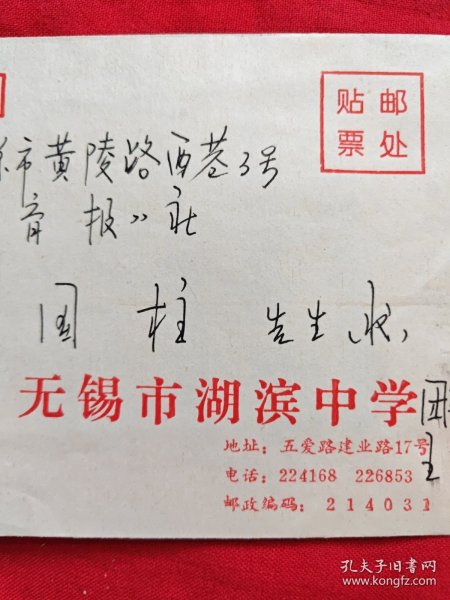 贴邮
票处
市黄陵路西巷3号
育报》社
国柱 先生 收
无锡市湖滨中学
地址：五爱路建业路17号
电话：224168 226853
邮政编码：214031
孔夫子旧书网
www.kongfz.com